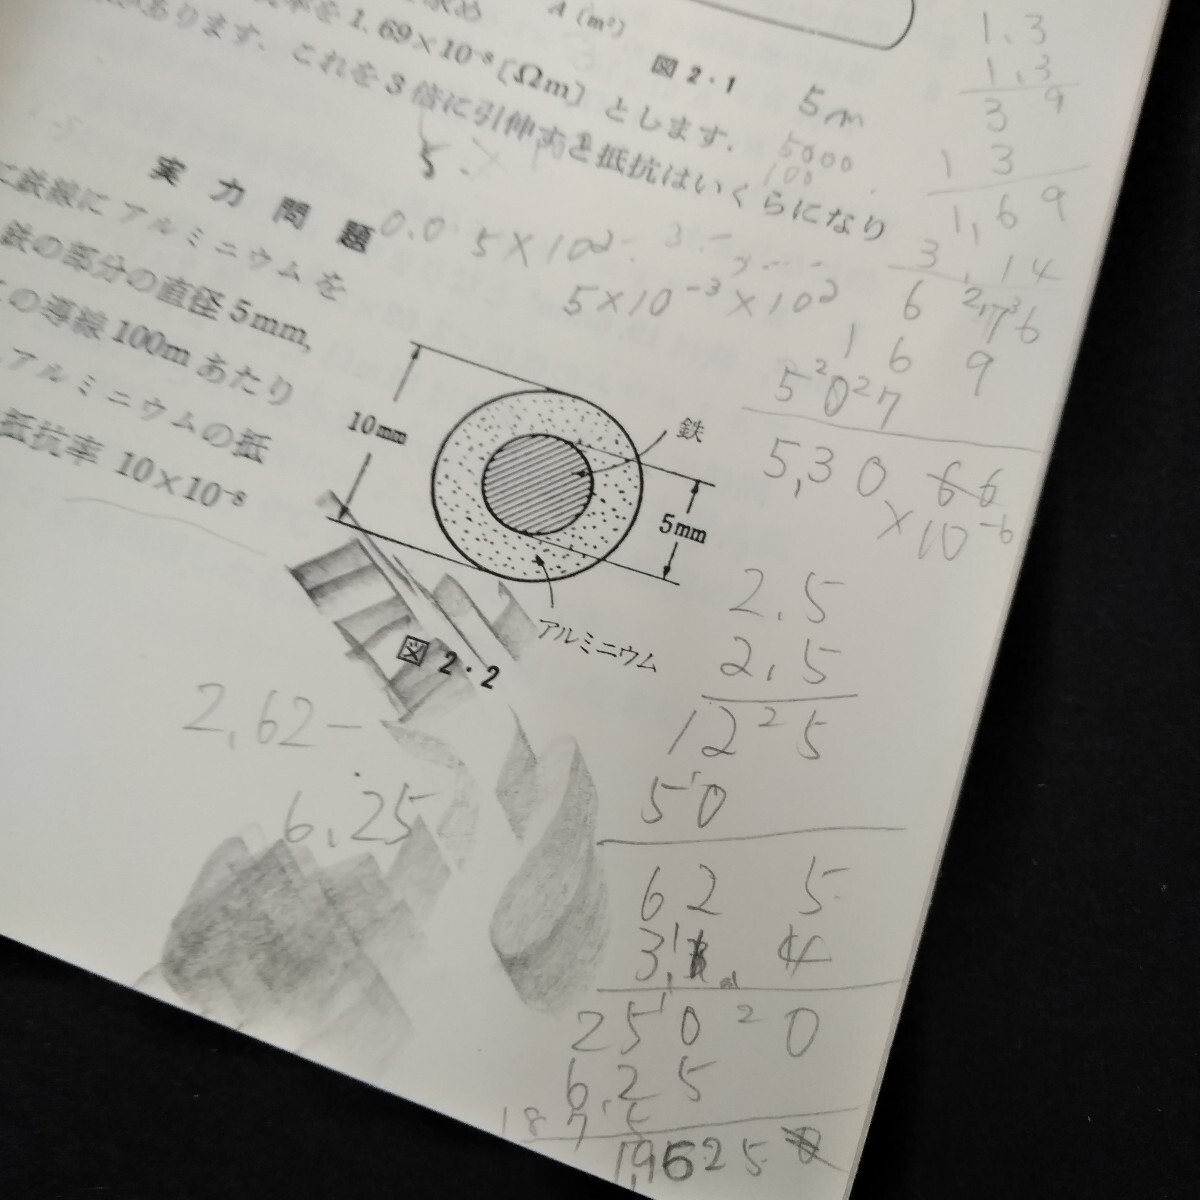 求め
A (m²)
率を1.69×10⁻⁸〔Ωm〕とします.
図2・1
があります. これを3倍に引伸すと抵抗はいくらになり
5m
5000
100
実力問題
に鉄線にアルミニウムを
鉄の部分の直径5mm,
の導線100mあたり
アルミニウムの抵
抵抗率 10×10⁻⁸
0.0 5×10²
5×10⁻³×10²
10mm
鉄
5mm
アルミニウム
図2・2
2,62-
6.25
1.3
1.3
3 9
1 3
1,6 9
3,14
6 7 6
1 6 9
5 0 7
5,30 66
×10⁻⁶
2.5
2,5
12 5
5 0
62 5
3,1 4
25 0 0
6 2 5
18 7 5
19625